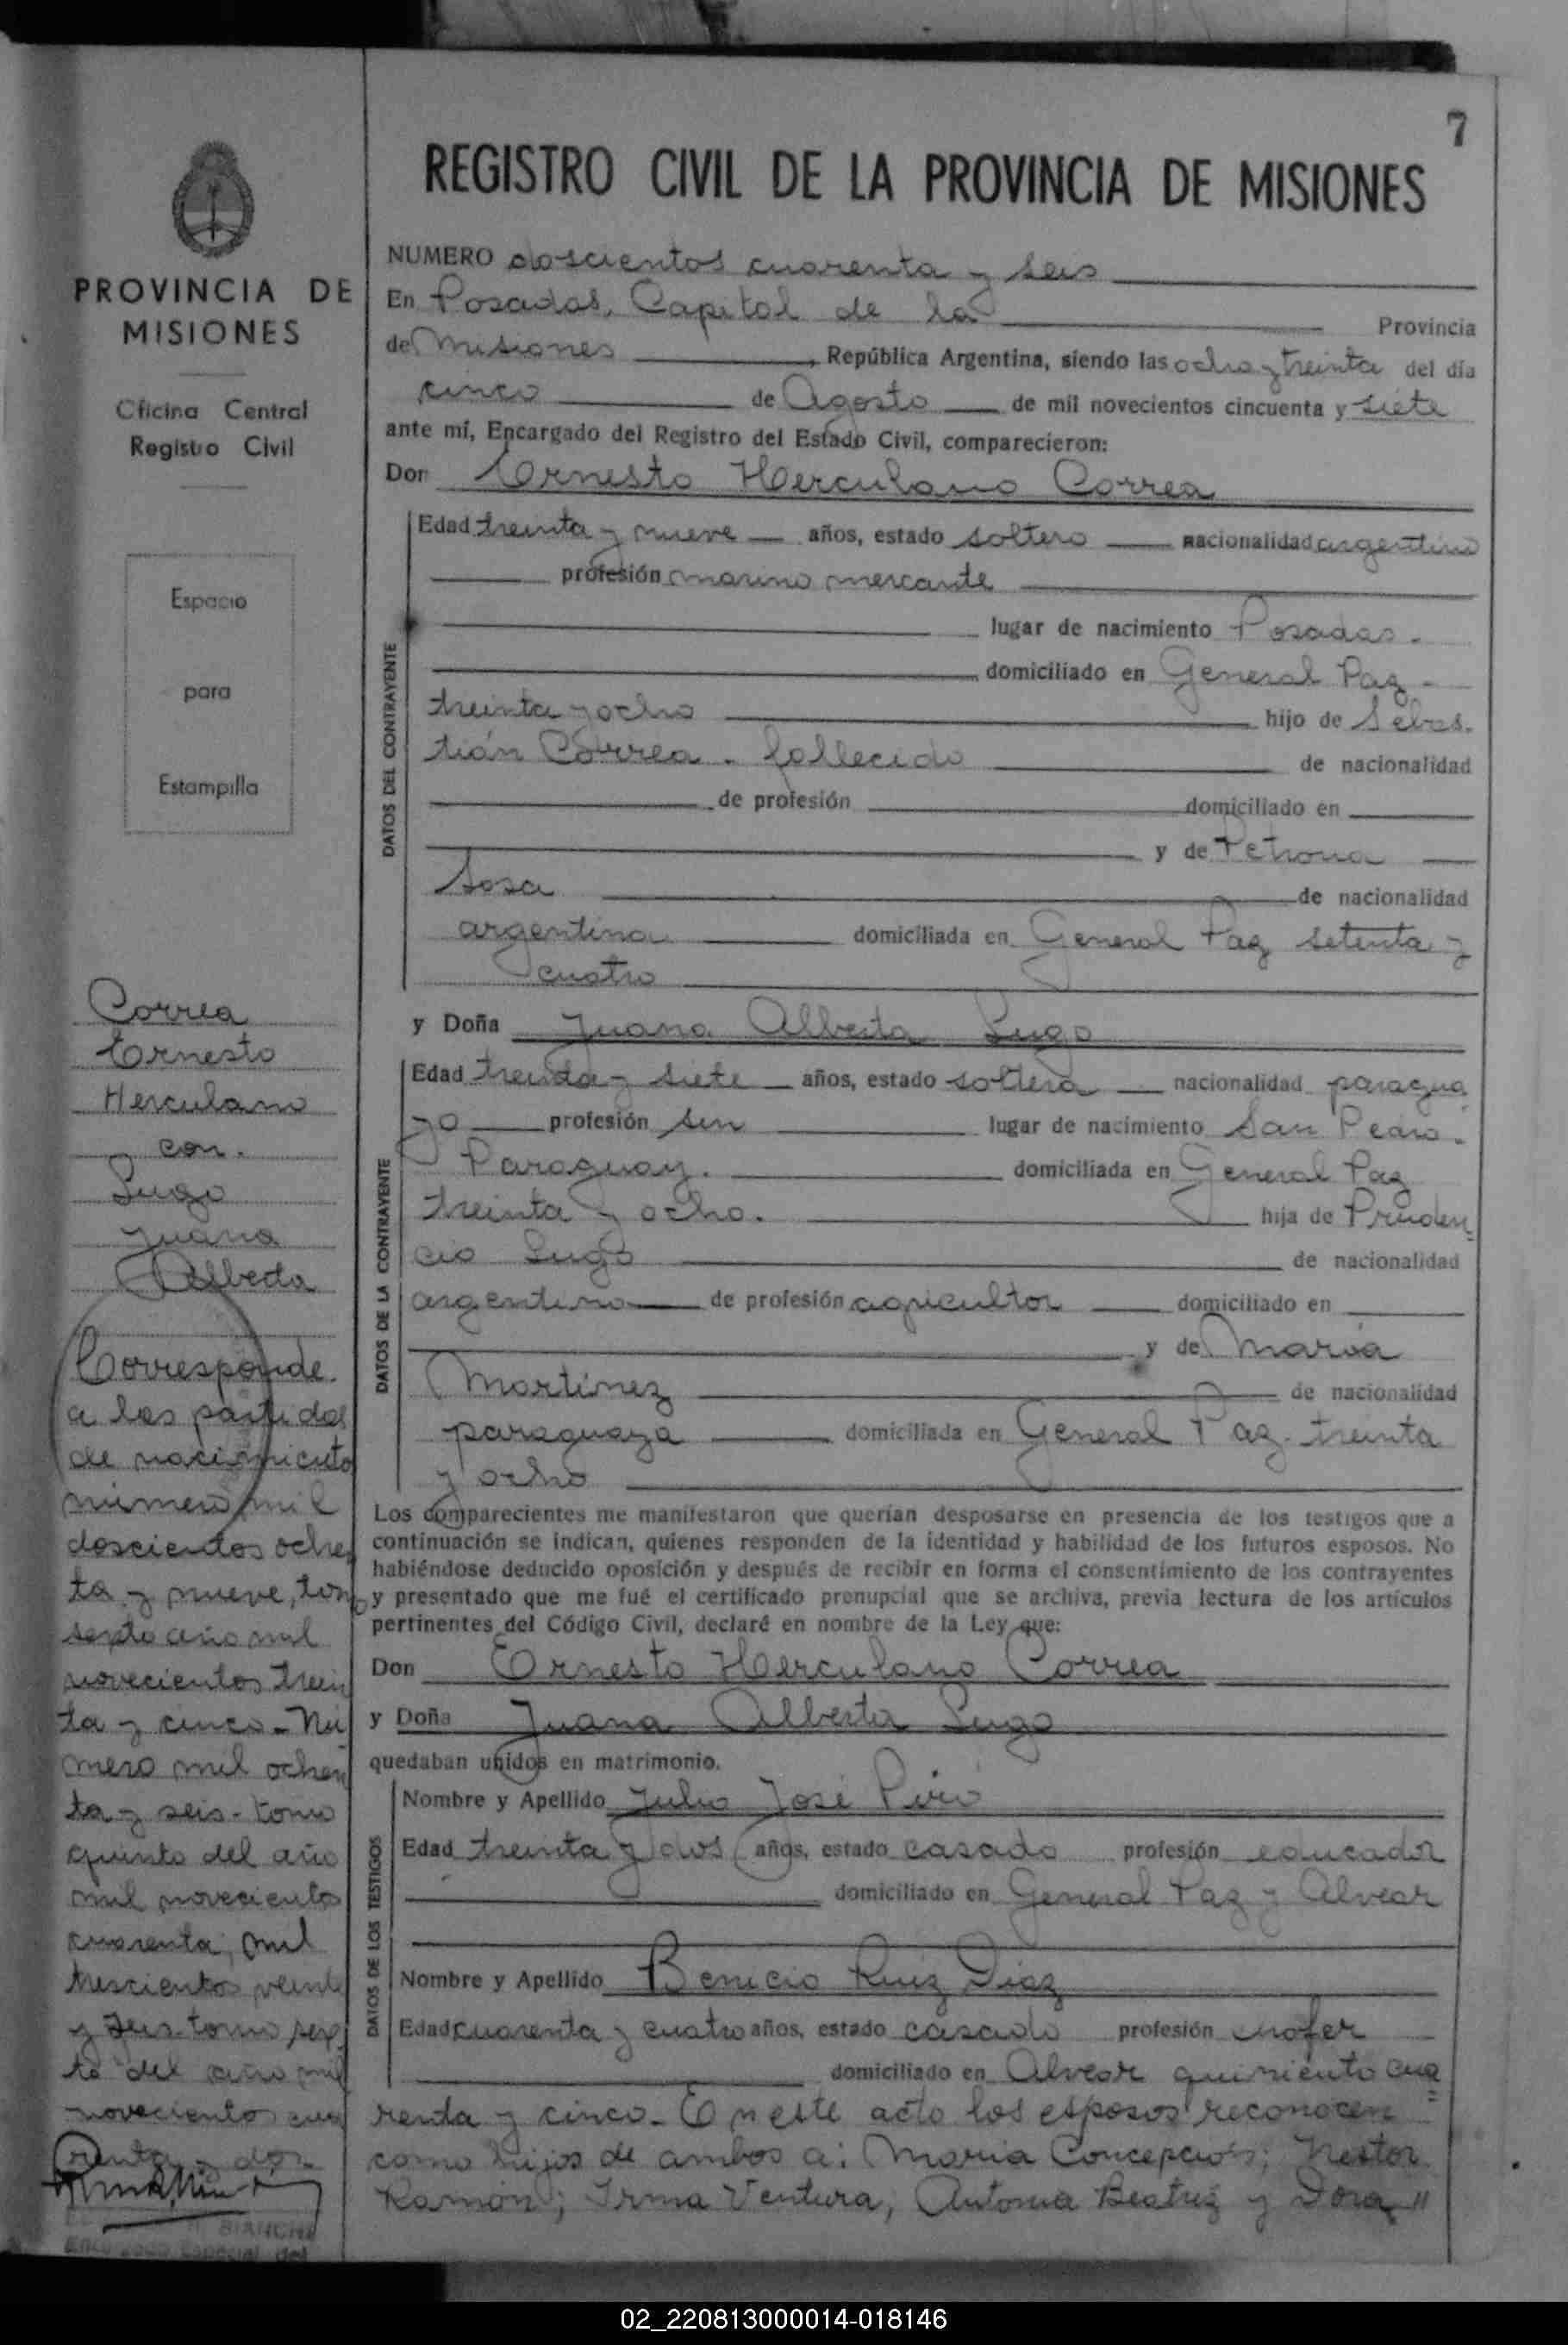 7
REGISTRO CIVIL DE LA PROVINCIA DE MISIONES
PROVINCIA DE
MISIONES
Oficina Central
Registro Civil
Espacio
para
Estampilla
Correa
Ernesto
Herculano
con.
Lugo
Juana
Alberta
Corresponde
a las partidas
de nacimiento
número mil
doscientos ochen
ta y nueve, tomo
sexto año mil
novecientos trein
ta y cinco - Nú
mero mil ochen
ta y seis - tomo
quinto del año
mil noveciento
cuarenta; mil
trescientos veinti
y seis tomo sex
to del año mil
noveciento cua
renta y dos
BIANCHI
Encargado Especial del
NUMERO doscientos cuarenta y seis
En Posadas, Capital de la Provincia
de Misiones, República Argentina, siendo las ocho y treinta del día
cinco de Agosto de mil novecientos cincuenta y siete
ante mí, Encargado del Registro del Estado Civil, comparecieron:
Don Ernesto Herculano Correa
DATOS DEL CONTRAYENTE
Edad treinta y nueve años, estado soltero nacionalidad argentino
profesión marino mercante
lugar de nacimiento Posadas.
domiciliado en General Paz -
treinta y ocho hijo de Sebas.
tián Correa - fallecido de nacionalidad
de profesión domiciliado en
y de Petrona
Sosa de nacionalidad
argentina domiciliada en General Paz setenta y
cuatro
y Doña Juana Alberta Lugo
DATOS DE LA CONTRAYENTE
Edad treinta y siete años, estado soltera nacionalidad paragua
ya profesión sin lugar de nacimiento San Pedro.
Paraguay. domiciliada en General Paz
treinta y ocho. hija de Pruden
cio Lugo de nacionalidad
argentino de profesión agricultor domiciliado en
y de Maria
Martinez de nacionalidad
paraguaya domiciliada en General Paz treinta
y ocho
Los comparecientes me manifestaron que querían desposarse en presencia de los testigos que a
continuación se indican, quienes responden de la identidad y habilidad de los futuros esposos. No
habiéndose deducido oposición y después de recibir en forma el consentimiento de los contrayentes
y presentado que me fué el certificado prenupcial que se archiva, previa lectura de los artículos
pertinentes del Código Civil, declaré en nombre de la Ley que:
Don Ernesto Herculano Correa
y Doña Juana Alberta Lugo
quedaban unidos en matrimonio.
DATOS DE LOS TESTIGOS
Nombre y Apellido Julio José Piró
Edad treinta y dos años, estado casado profesión educador
domiciliado en General Paz y Alvear
Nombre y Apellido Benicio Ruiz Diaz
Edad cuarenta y cuatro años, estado casado profesión chofer
domiciliado en Alvear quiniento cua
renta y cinco - En este acto los esposos reconocen
como hijos de ambos a: Maria Concepción; Nestor
Ramón; Irma Ventura, Antonia Beatriz y Dora "
02_220813000014-018146